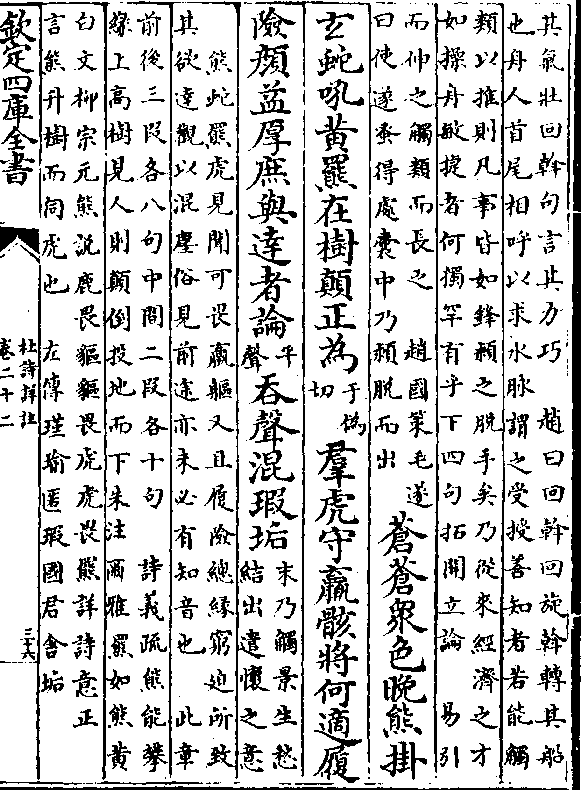 其氣壯回斡句言其力巧　趙曰回斡回旋斡轉其船
也舟人首尾相呼以求水脉謂之受授善知者若能觸
類以推則凡事皆如鋒穎之脫手矣乃從來經濟之才
如操舟敏捷者何獨罕有乎下四句拓開立論　易引
而伸之觸類而長之　趙國策毛遂
曰使遂蚤得處囊中乃穎脫而出
蒼蒼衆色晚熊掛
玄蛇吼黃羆在樹顛正為于偽切羣虎守羸骸將何適履
險顏益厚庶與達者論平聲吞聲混瑕垢
末乃觸景生愁
結出遣懷之意
熊蛇羆虎見聞可畏羸軀又且履險總緣窮迫所致
其欲達觀以混塵俗見前途亦未必有知音也　此章
前後三段各八句中間二段各十句　詩義疏熊能攀
緣上高樹見人則顛倒投地而下朱注爾雅羆如熊黃
白文柳宗元熊說鹿畏貙貙畏虎虎畏羆詳詩意正
言熊升樹而伺虎也　左傳瑾瑜匿瑕國君含垢
欽定四庫全書
杜詩詳註
卷二十二
三六